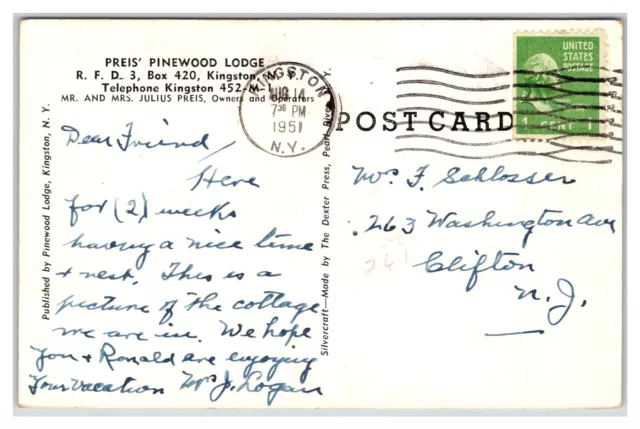 PREIS' PINEWOOD LODGE
R. F. D. 3, Box 420, Kingston, N. Y.
Telephone Kingston 452-M-1
MR. AND MRS. JULIUS PREIS, Owners and Operators
KINGSTON
AUG 14
7 30 PM
1951
N.Y.
UNITED
STATES
POSTAGE
1 CENT 1
POST CARD
Dear Friend,
Here
for (2) weeks
having a nice time
& rest. This is a
picture of the cottage
we are in. We hope
you & Ronald are enjoying
your vacation Mrs J. Logan
Mrs. F. Schlosser
263 Washington Ave
Clifton
N. J.
261
Published by Pinewood Lodge, Kingston, N. Y.
Silvercraft—Made by The Dexter Press, Pearl River, N. Y.